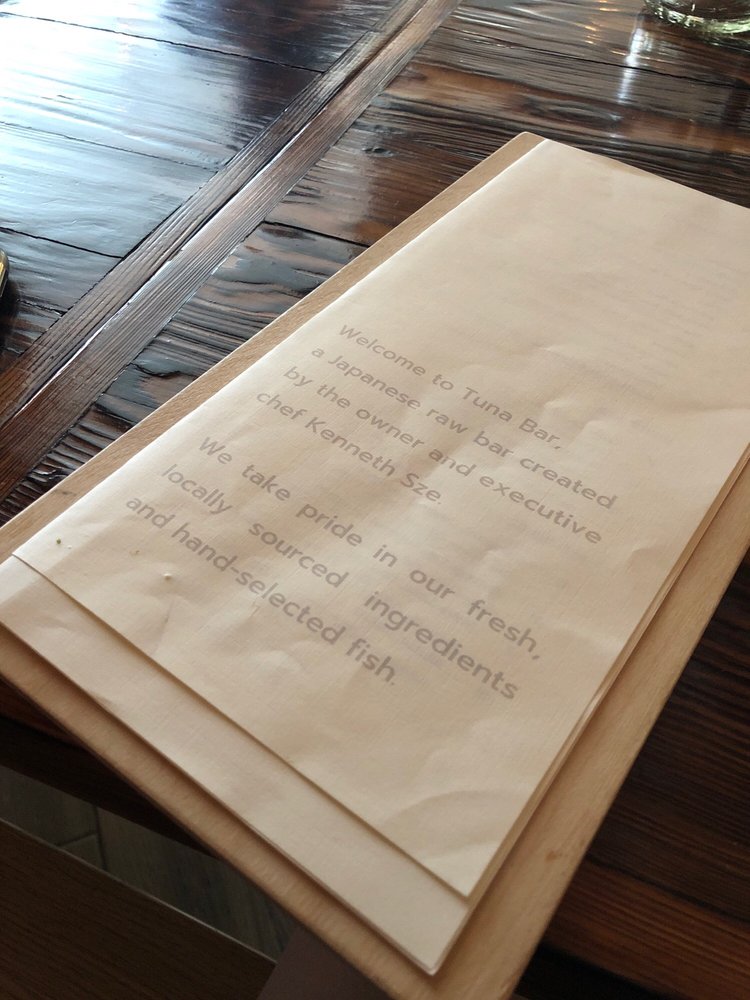 Welcome to Tuna Bar,
a Japanese raw bar created
by the owner and executive
chef Kenneth Sze.
We take pride in our fresh,
locally sourced ingredients
and hand-selected fish.